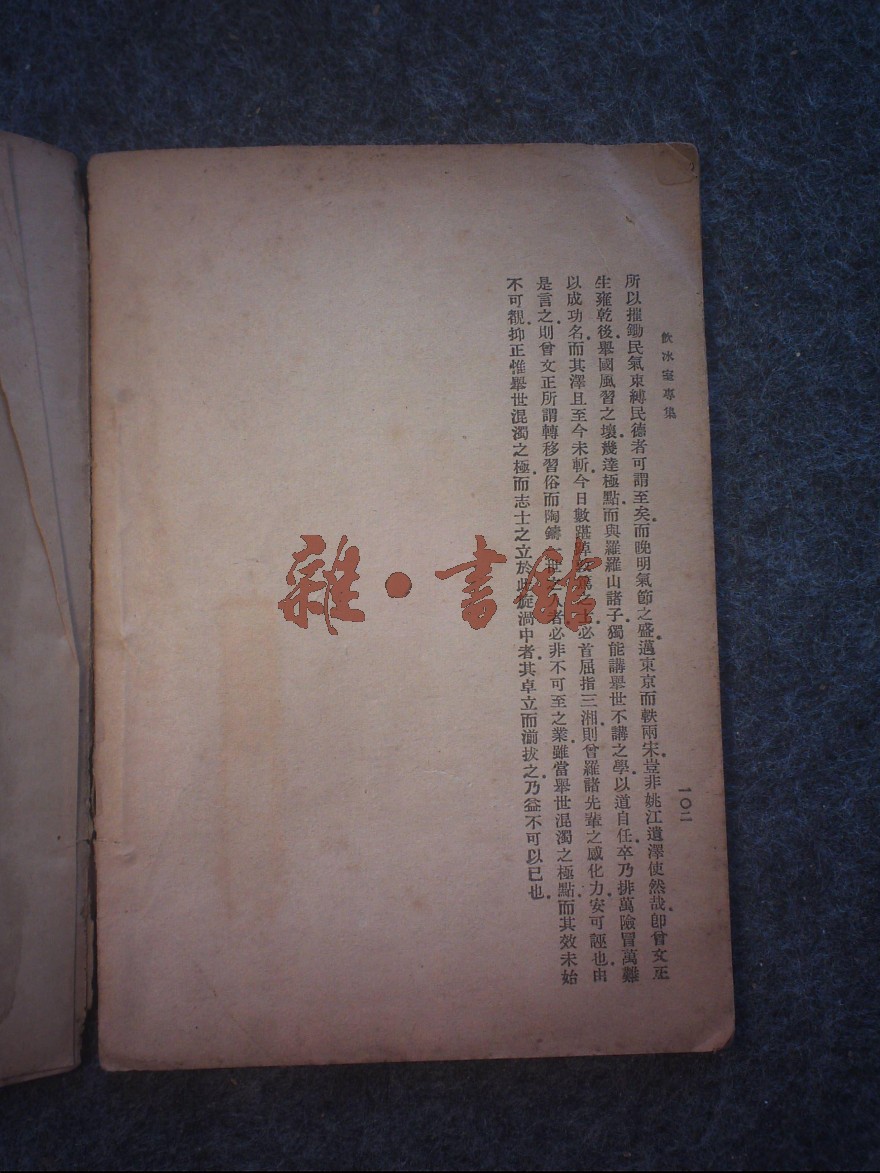 飲冰室專集
一〇二
所以摧鋤民氣束縛民德者可謂至矣.而晚明氣節之盛.邁東京而軼兩宋.豈非姚江遺澤使然哉.卽曾文正
生雍乾後.舉國風習之壞.幾達極點.而與羅羅山諸子.獨能講舉世不講之學.以道自任.卒乃排萬險冒萬難
以成功名.而其澤且至今未斬.今日數踸踔之士.必首屈指三湘.則曾羅諸先輩之感化力.安可誣也.由
是言之.則曾文正所謂轉移習俗而陶鑄一世之人者.必非不可至之業.雖當舉世混濁之極點.而其效未始
不可覩.抑正惟舉世混濁之極.而志士之立於此旋渦中者.其卓立而湔拔之.乃益不可以已也.
雜·書館